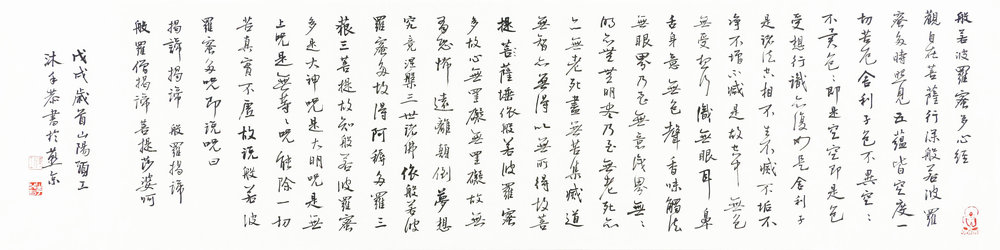 般若波羅蜜多心經
觀自在菩薩行深般若波羅
蜜多時照見五蘊皆空度一
切苦厄舍利子色不異空：
不異色：即是空空即是色
受想行識亦復如是舍利子
是諸法空相不生不滅不垢不
淨不增不減是故空中無色
無受想行識無眼耳鼻
舌身意無色聲香味觸法
無眼界乃至無意識界無：
明亦無無明盡乃至無老死
亦無老死盡無苦集滅道
無智亦無得以無所得故菩
提菩薩埵依般若波羅蜜
多故心無罣礙無罣礙故無
有恐怖遠離顛倒夢想
究竟涅槃三世諸佛依般若波
羅蜜多故得阿耨多羅三
藐三菩提故知般若波羅蜜
多是大神咒是大明咒是無
上咒是無等：咒能除一切
苦真實不虛故說般若波
羅蜜多咒即說咒曰
揭諦揭諦 般羅揭諦
般羅僧揭諦 菩提莎婆呵
戊戌歲首山陽酉工
沐手恭書於燕京